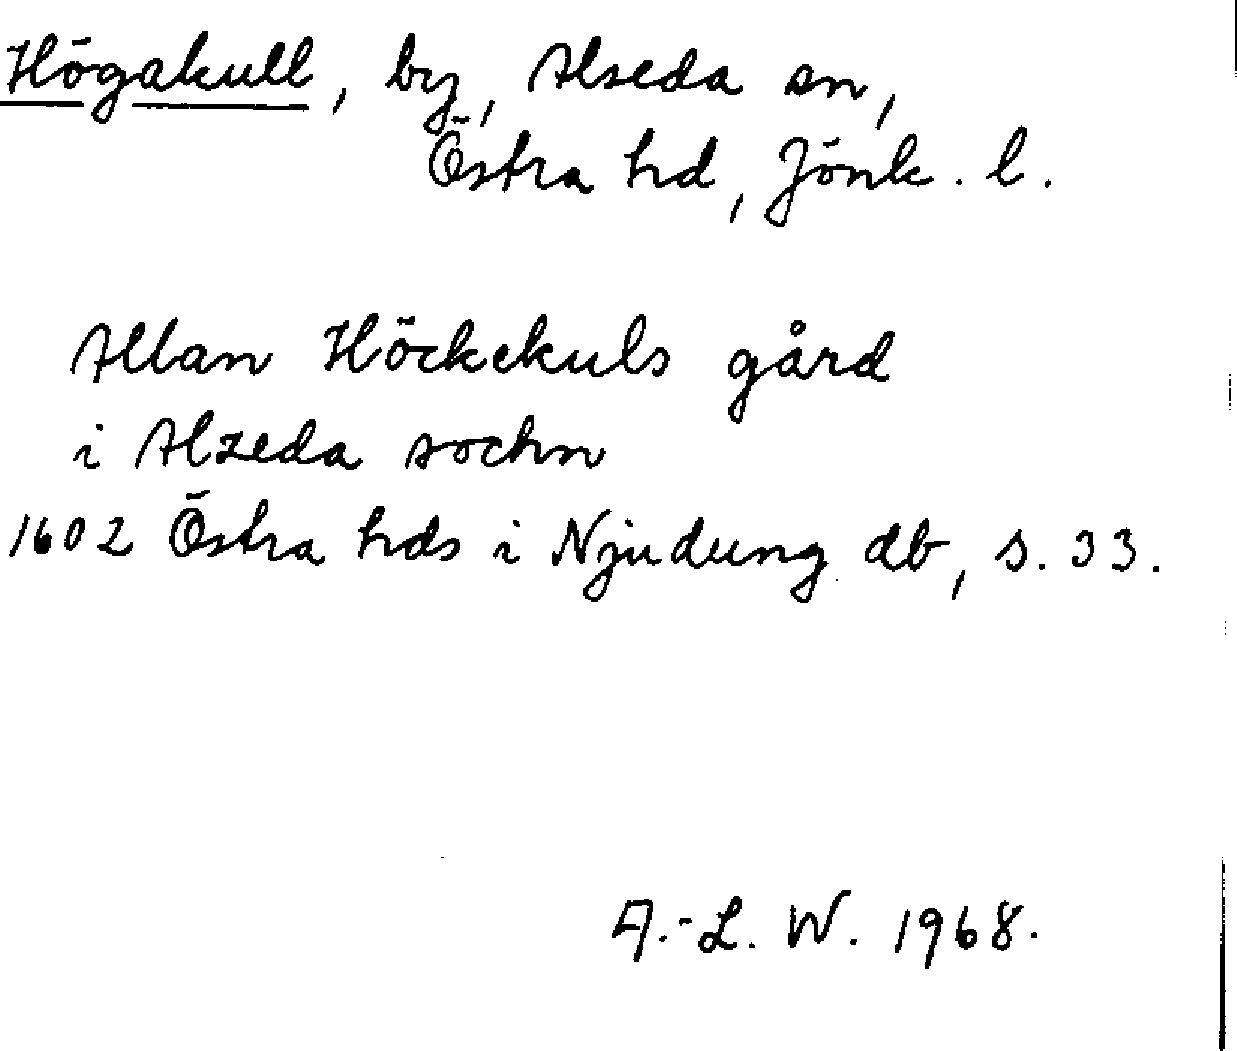 Högakull, by, Alseda sn,
Östra hd, Jönk. l.
Allan Höckekuls gård
i Alzeda sochn
1602 Östra hds i Njudung db, s. 33.
A.-L. W. 1968.